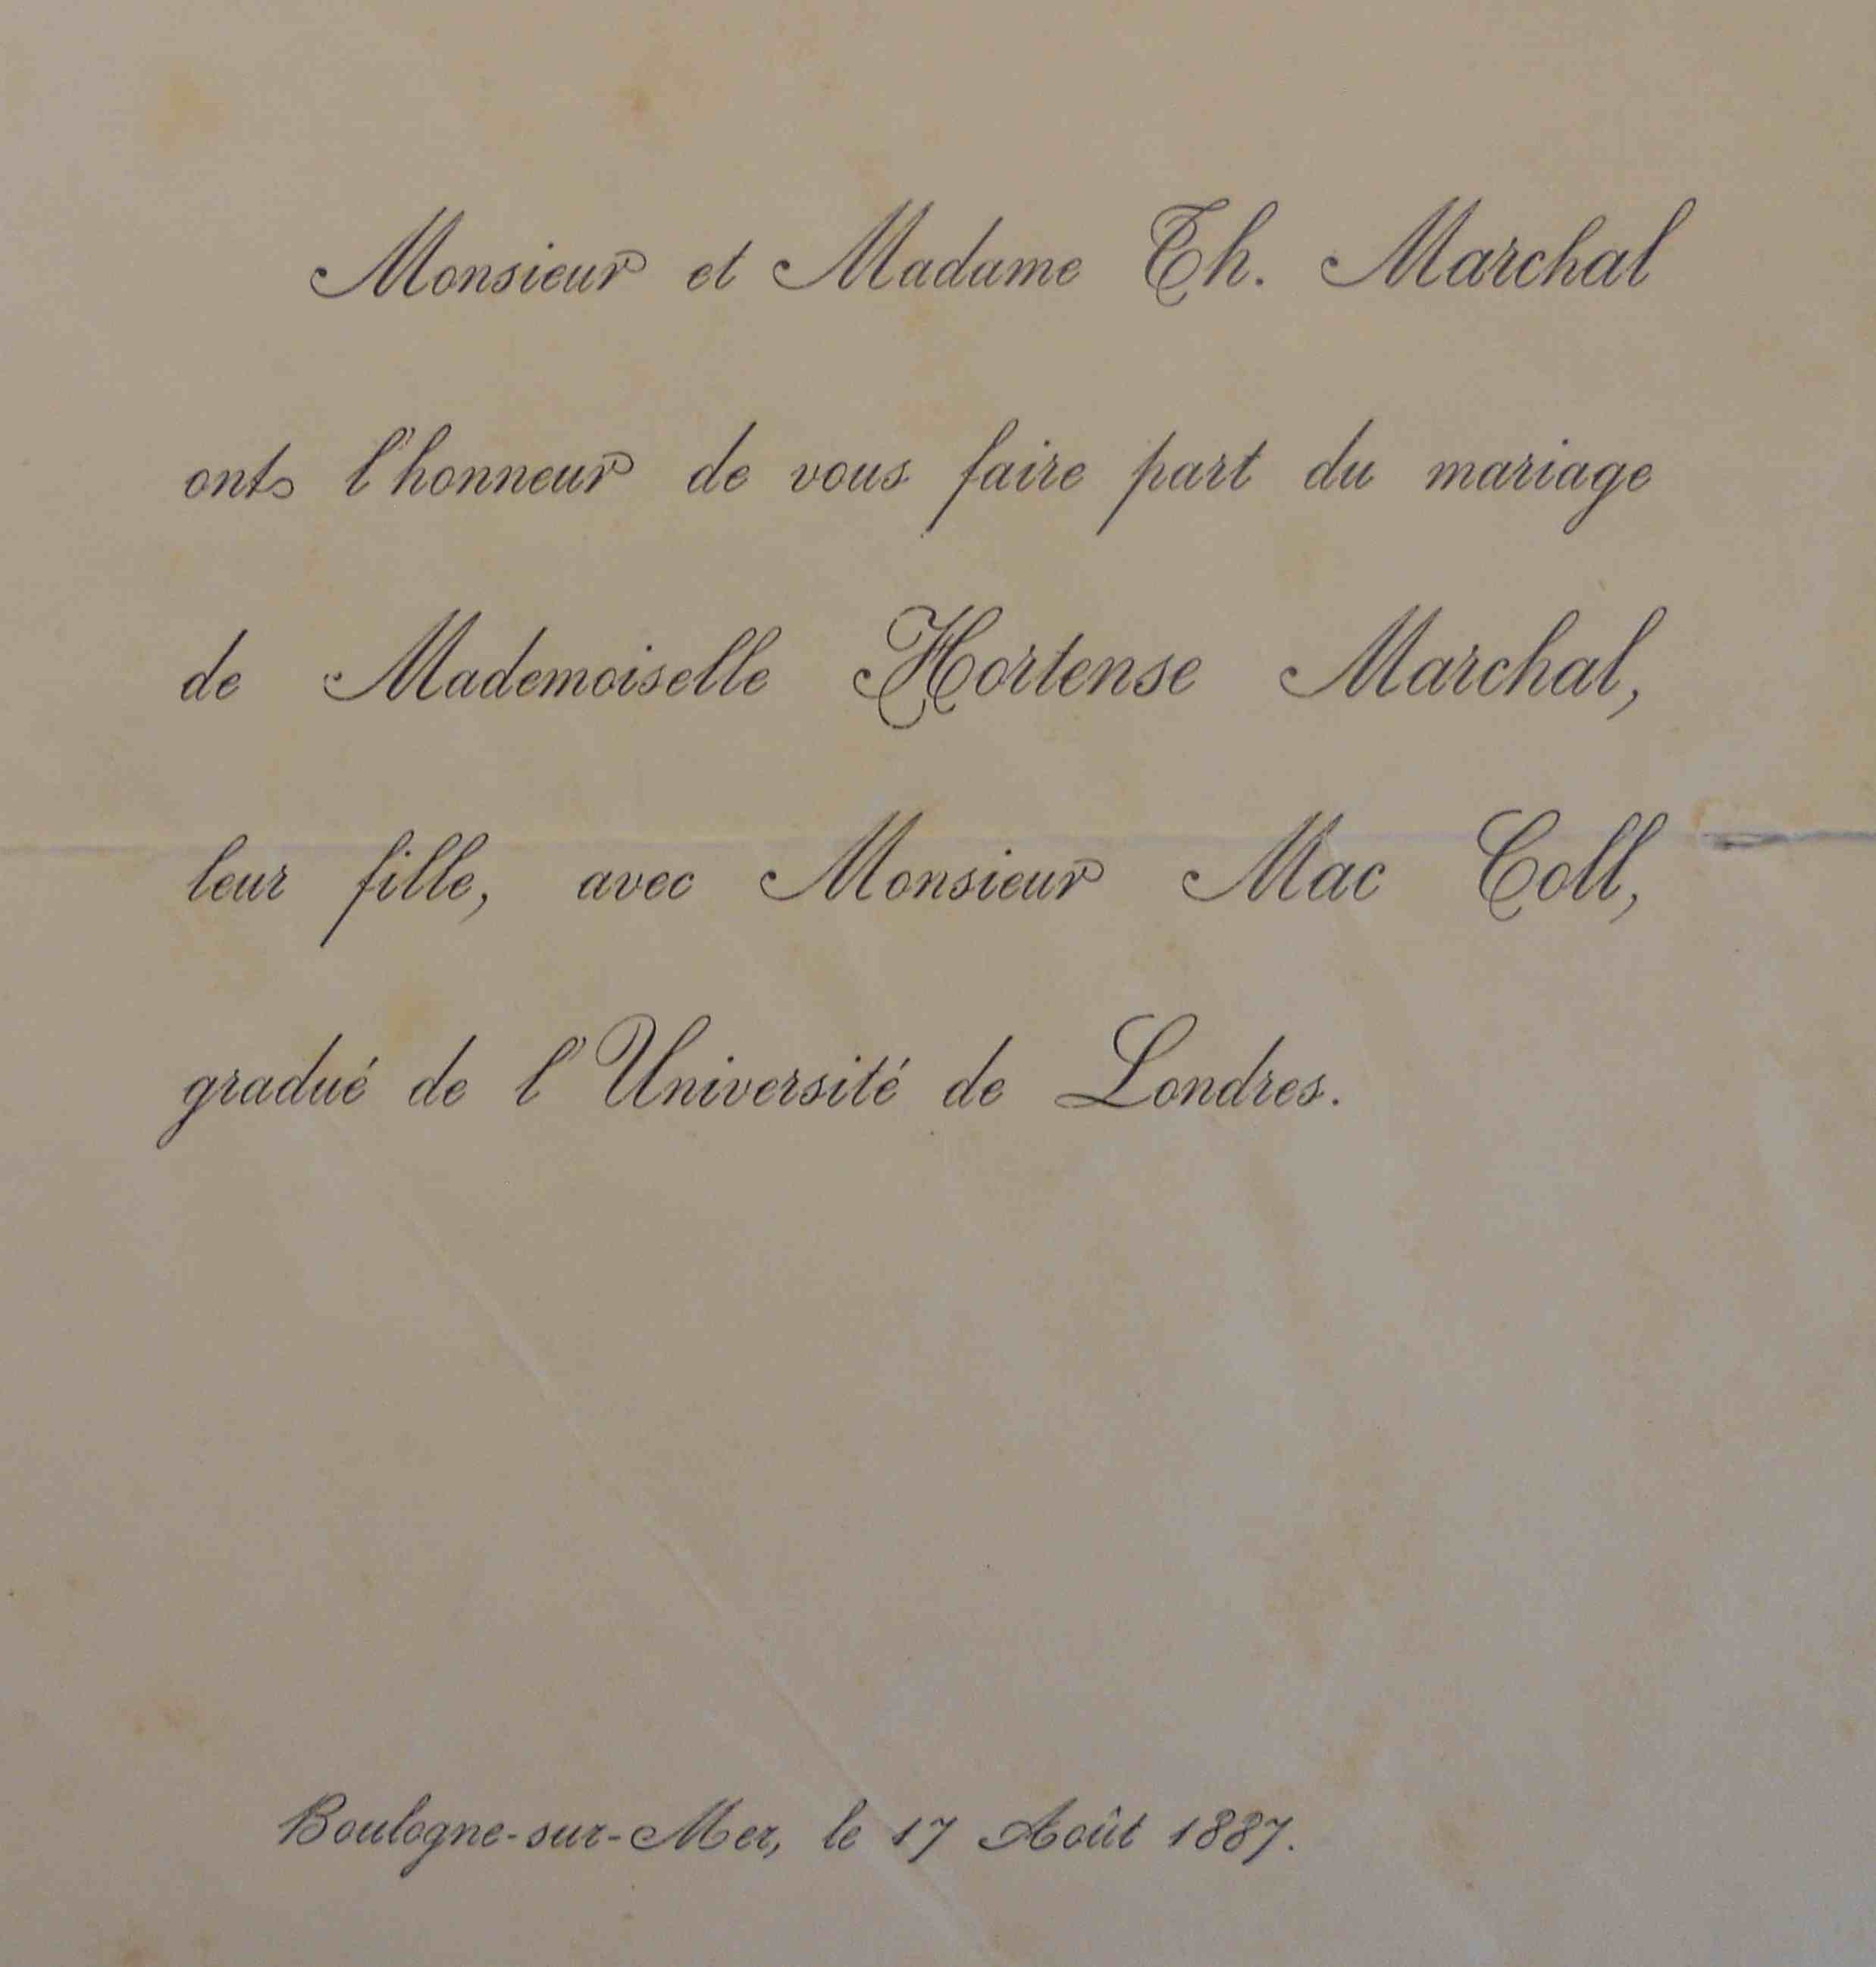 Monsieur et Madame Th. Marchal
ont l'honneur de vous faire part du mariage
de Mademoiselle Hortense Marchal,
leur fille, avec Monsieur Mac Coll,
gradué de l'Université de Londres.
Boulogne-sur-Mer, le 17 Août 1887.